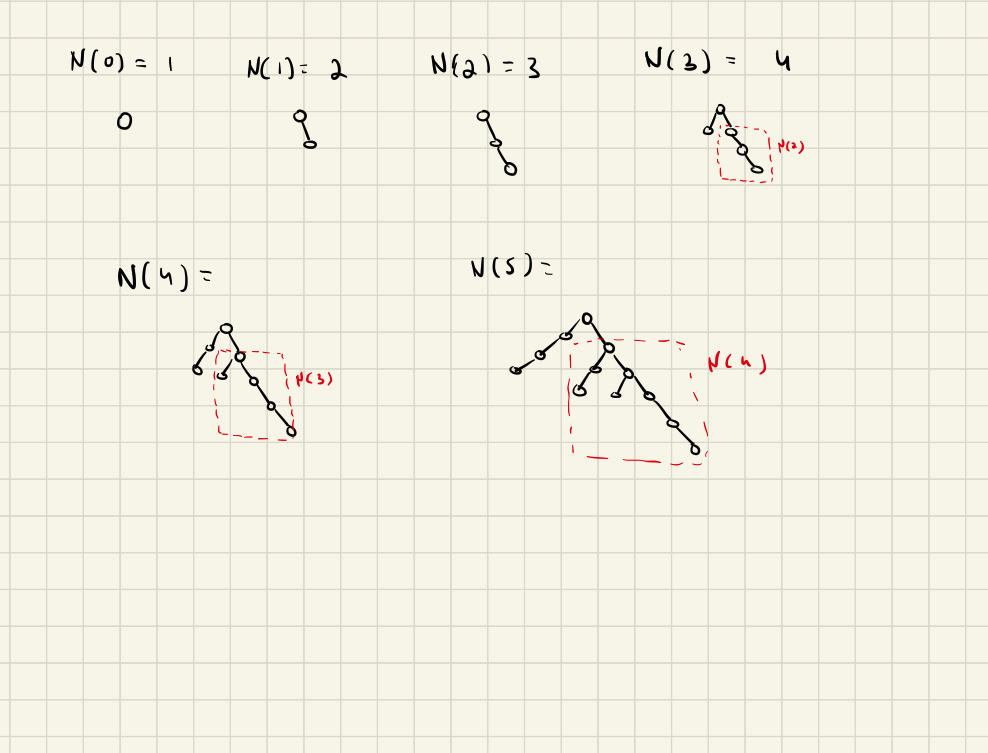 N(0) = 1 N(1) = 2 N(2) = 3 N(3) = 4
N(2)
N(4) = N(5) =
N(3) N(4)